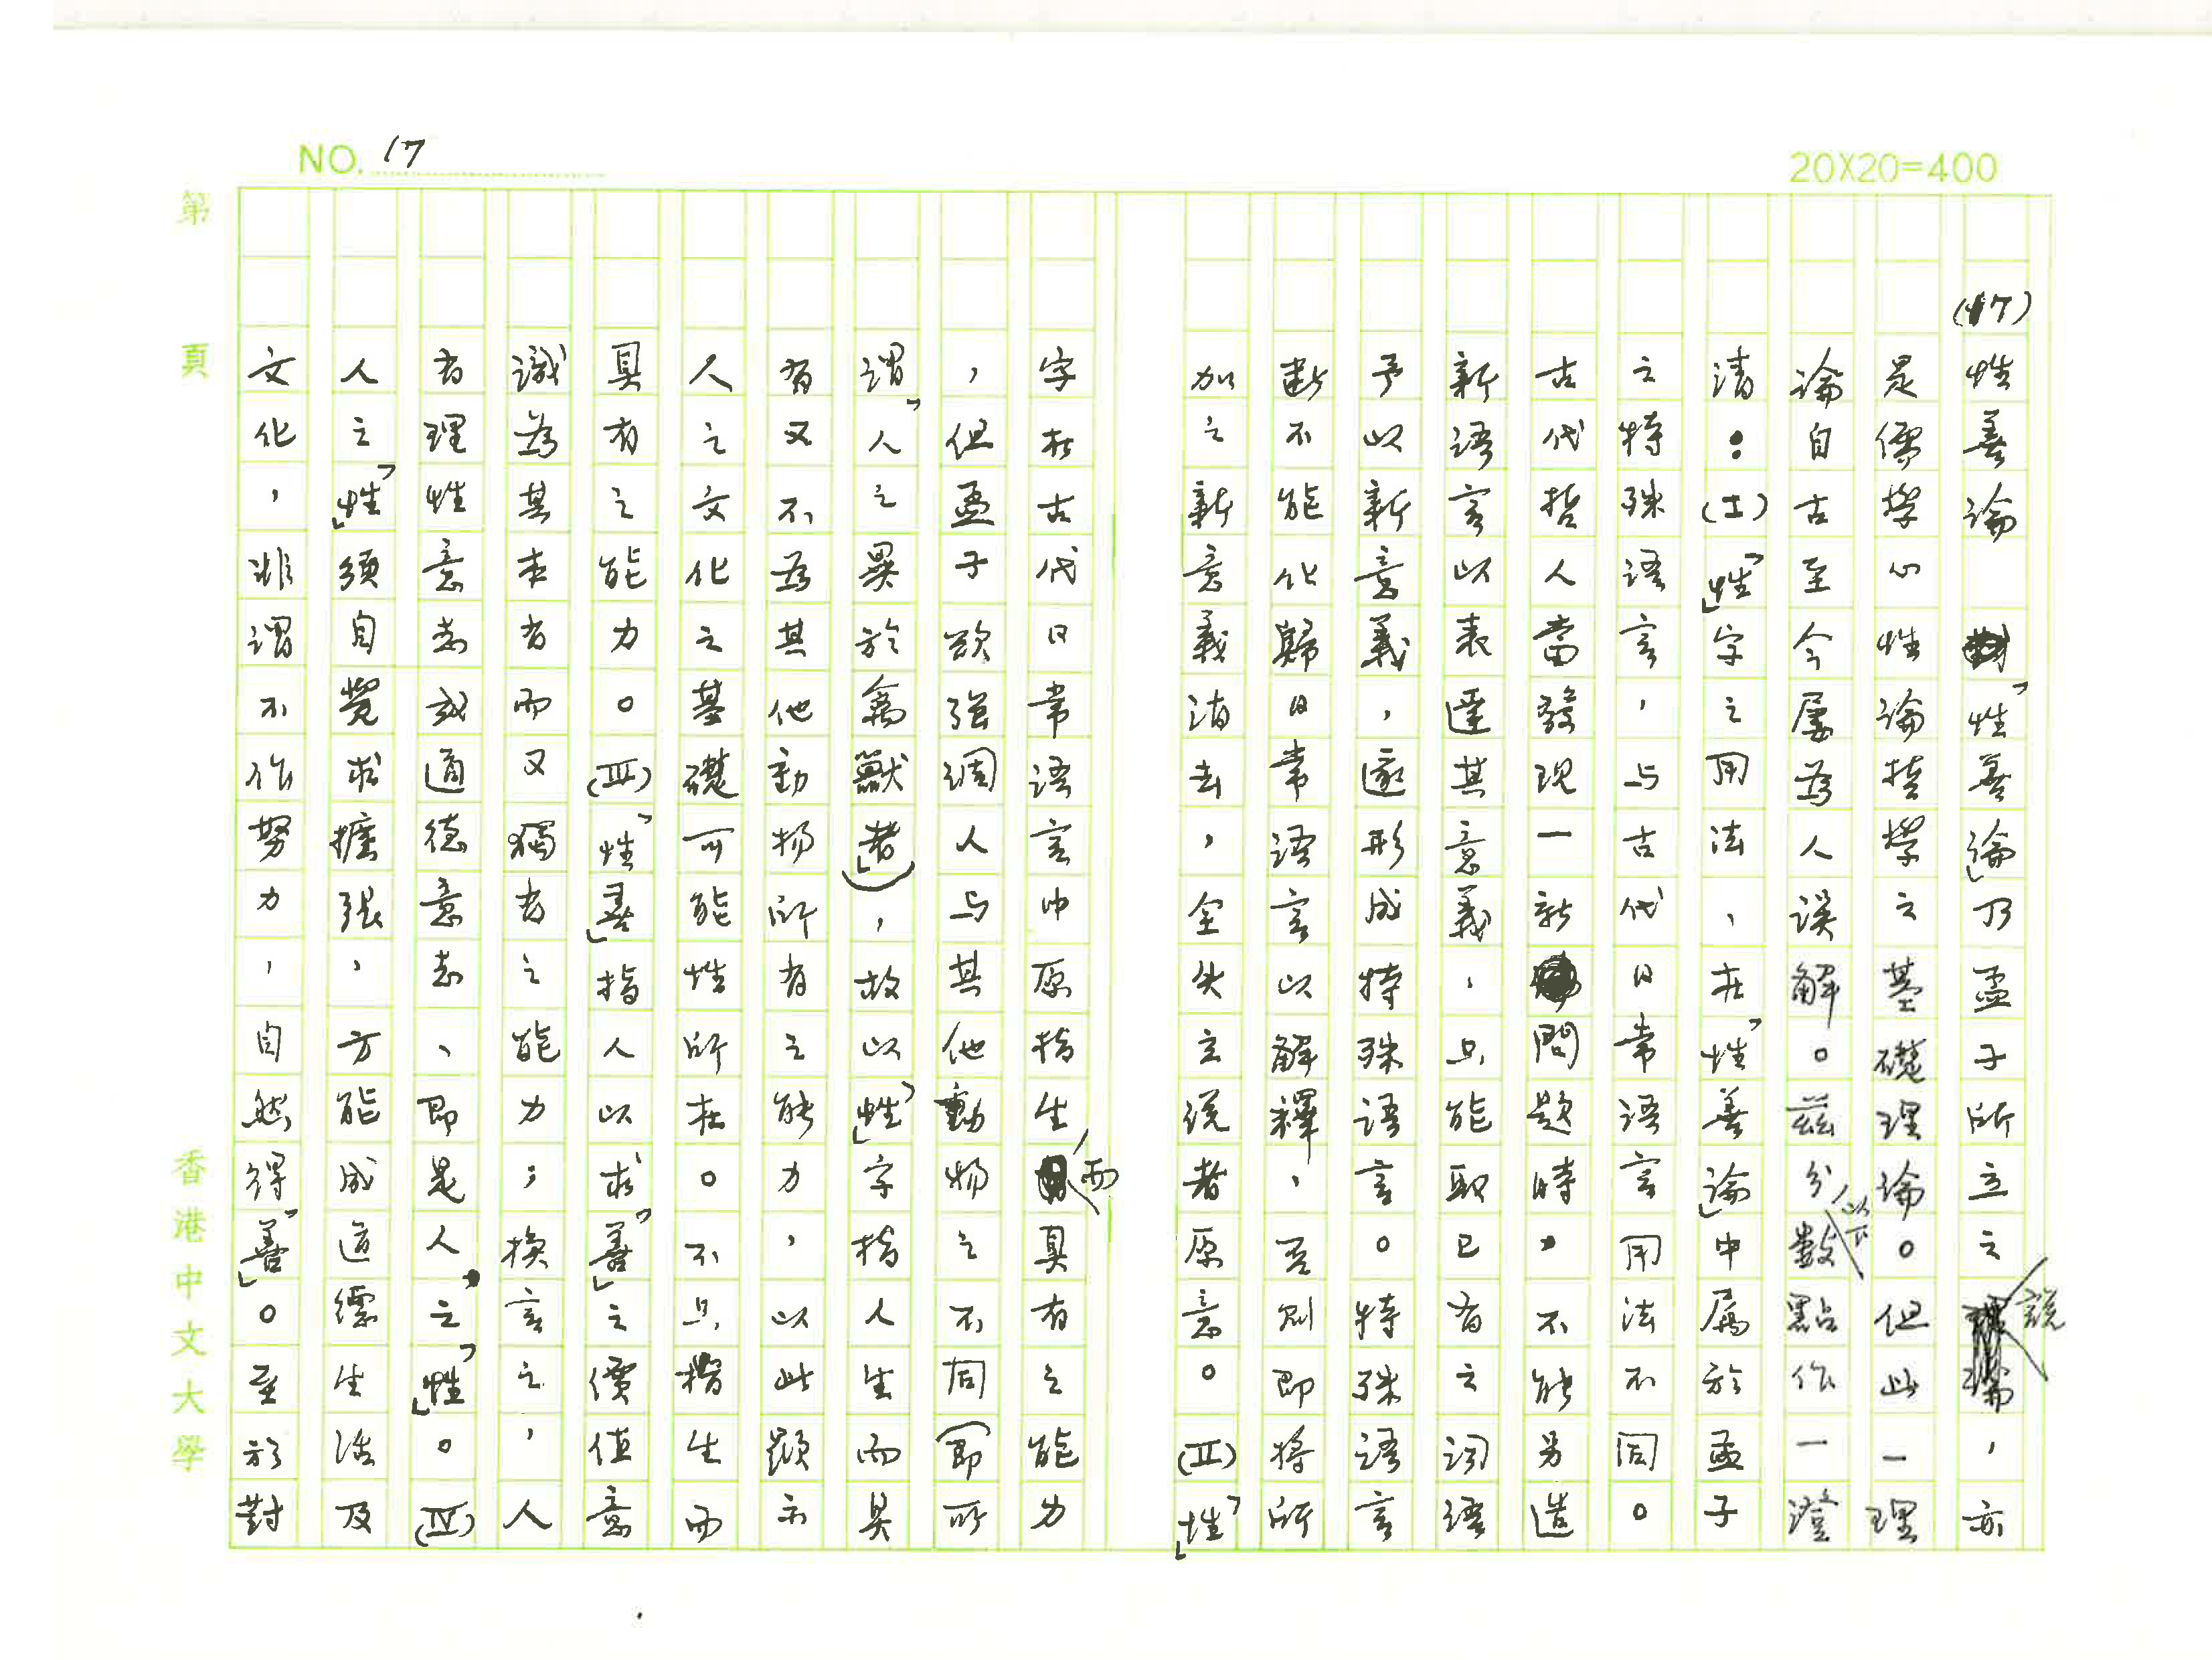 NO. 17
20X20=400
(17)
性善論　「性善論」乃孟子所立之說，亦
是儒學心性論哲學之基礎理論。但此一理
論自古至今屢為人誤解。茲分以下數點作一澄
清：(I)「性」字之用法，在「性善論」中屬於孟子
之特殊語言，与古代日常語言用法不同。
古代哲人當發現一新問題時，不能另造
新語言以表達其意義，只能取已有之詞語
予以新意義，遂形成特殊語言。特殊語言
斷不能化歸日常語言以解釋，否則即將所
加之新意義消去，全失立說者原意。(II)「性」
字在古代日常語言中原指生而具有之能力
，但孟子欲強調人与其他動物之不同(即所
謂「人之異於禽獸者」)，故以「性」字指人生而具
有又不為其他動物所有之能力，以此顯示
人之文化之基礎可能性所在。不只指生而
具有之能力。(III)「性善」指人以求「善」之價值意
識為其本有而又獨有之能力；換言之，人
有理性意志或道德意志、即是人之「性」。(IV)
人之「性」須自覺求擴張，方能成道德生活及
文化，非謂不作努力，自然得「善」。至於對
第　頁
香港中文大學